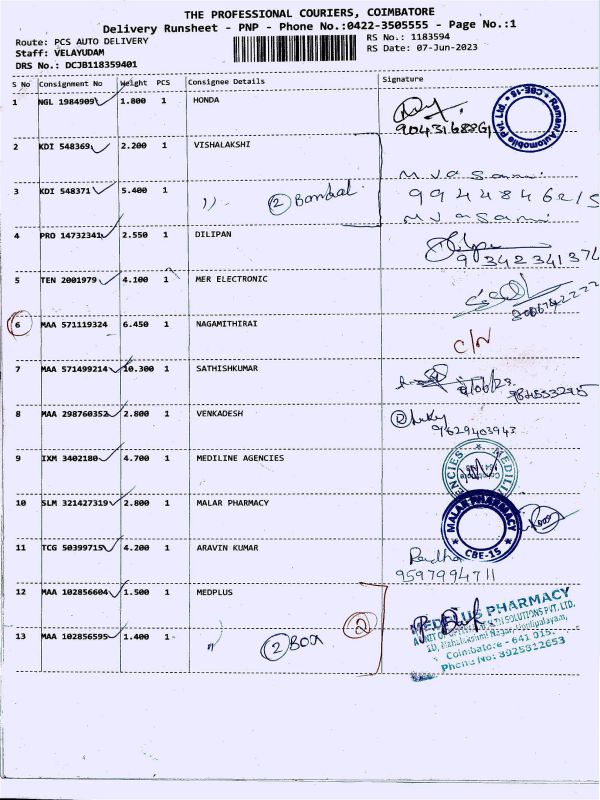 THE PROFESSIONAL COURIERS, COIMBATORE
Delivery Runsheet - PNP - Phone No.:0422-3505555 - Page No.:1
Route: PCS AUTO DELIVERY RS No.: 1183594
Staff: VELAYUDAM RS Date: 07-Jun-2023
DRS No.: DCJB118359401
S No Consignment No Weight PCS Consignee Details Signature
1 NGL 1984909 1.800 1 HONDA
Ramani Automobile Pvt. Ltd. * CBE-18 *
2 KDI 548369 2.200 1 VISHALAKSHI
3 KDI 548371 5.400 1 〃 2
4 PRO 14732341 2.550 1 DILIPAN
9342341374
5 TEN 2001979 4.100 1 MER ELECTRONIC
6 MAA 571119324 6.450 1 NAGAMITHIRAI
C/N
7 MAA 571499214 10.300 1 SATHISHKUMAR
8 MAA 298760352 2.800 1 VENKADESH
9629403943
9 IXM 3402180 4.700 1 MEDILINE AGENCIES
10 SLM 321427319 2.800 1 MALAR PHARMACY
MALAR PHARMACY * CBE-15 *
11 TCG 50399715 4.200 1 ARAVIN KUMAR
Radha
9597994711
12 MAA 102856604 1.500 1 MEDPLUS
13 MAA 102856595 1.400 1 〃 2 Box 2
MEDPLUS PHARMACY
Coimbatore - 641 015.